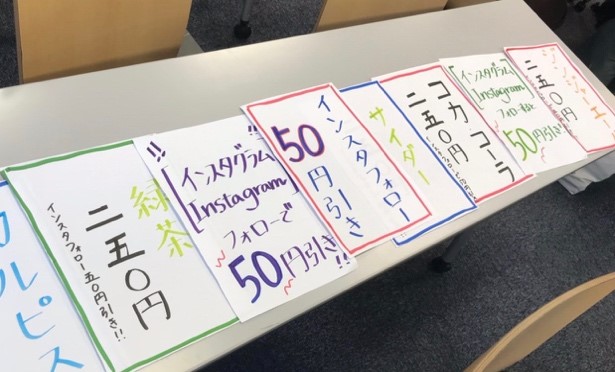 カルピス
緑茶
二五〇円
インスタフォロー五〇円引き!!
!!
[インスタグラム
Instagram]
フォローで
50円引き!!
インスタフォロー
50円引き
サイダー
コカコーラ
二五〇円
[インスタグラム
Instagram]
50円引き!
ジンジャーエール
二五〇円